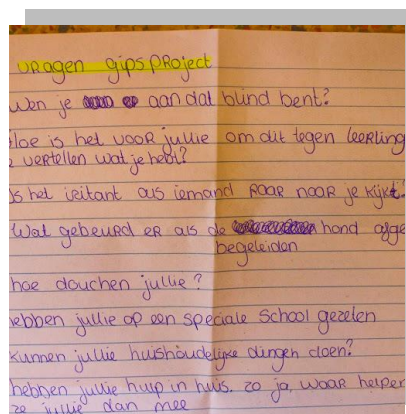 vragen gipsproject
Wen je aan dat blind bent?
Hoe is het voor jullie om dit tegen leerling
vertellen wat je hebt?
Is het iritant als iemand raar naar je kijkt?
Wat gebeurd er als de hond afge
begeleiden
hoe douchen jullie?
hebben jullie op een speciale school gezeten
kunnen jullie huishoudelijke dingen doen?
hebben jullie hulp in huis. zo ja, waar helpen
ze jullie dan mee